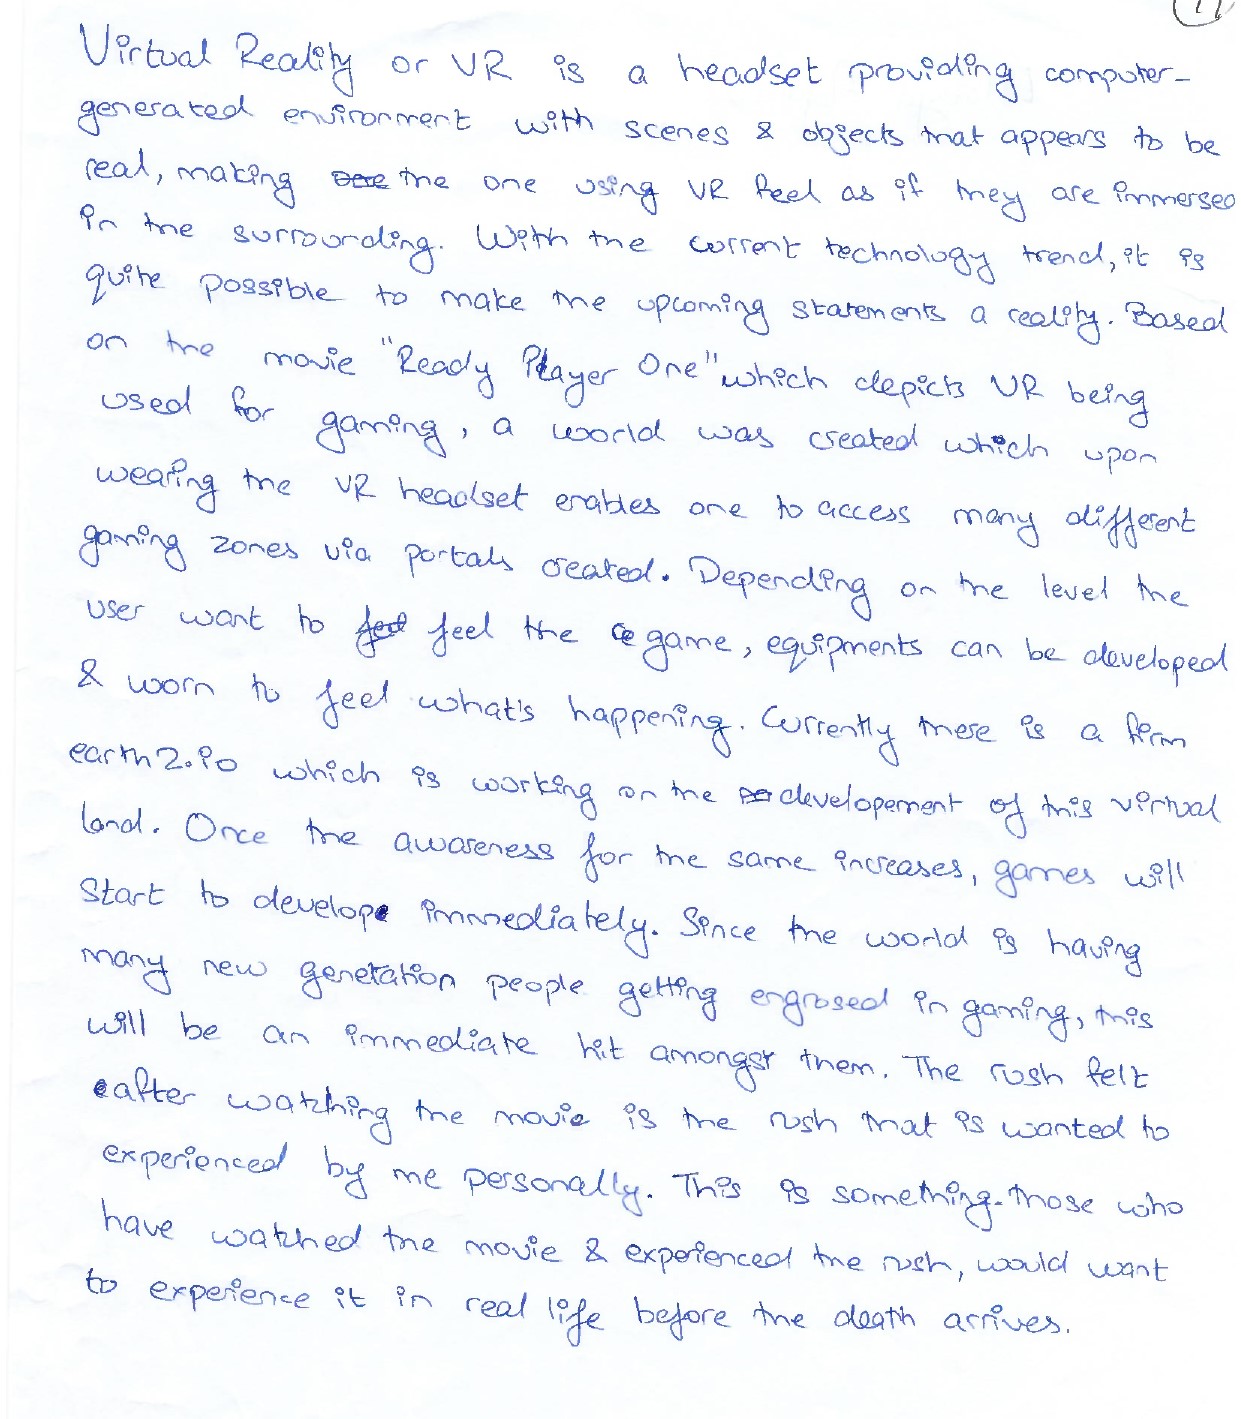 Virtual Reality or VR is a headset providing computer-
generated environment with scenes & objects that appears to be
real, making the one using VR feel as if they are immersed
in the surrounding. With the current technology trend, it is
quite possible to make the upcoming statements a reality. Based
on the movie "Ready Player One" which depicts VR being
used for gaming, a world was created which upon
wearing the VR headset enables one to access many different
gaming zones via portals created. Depending on the level the
user want to feel the game, equipments can be developed
& worn to feel what's happening. Currently there is a firm
earth2.io which is working on the developement of this virtual
land. Once the awareness for the same increases, games will
start to develop immediately. Since the world is having
many new genetation people getting engrosed in gaming, this
will be an immediate hit amongst them. The rush felt
after watching the movie is the rush that is wanted to
experienced by me personally. This is something those who
have watched the movie & experienced the rush, would want
to experience it in real life before the death arrives.